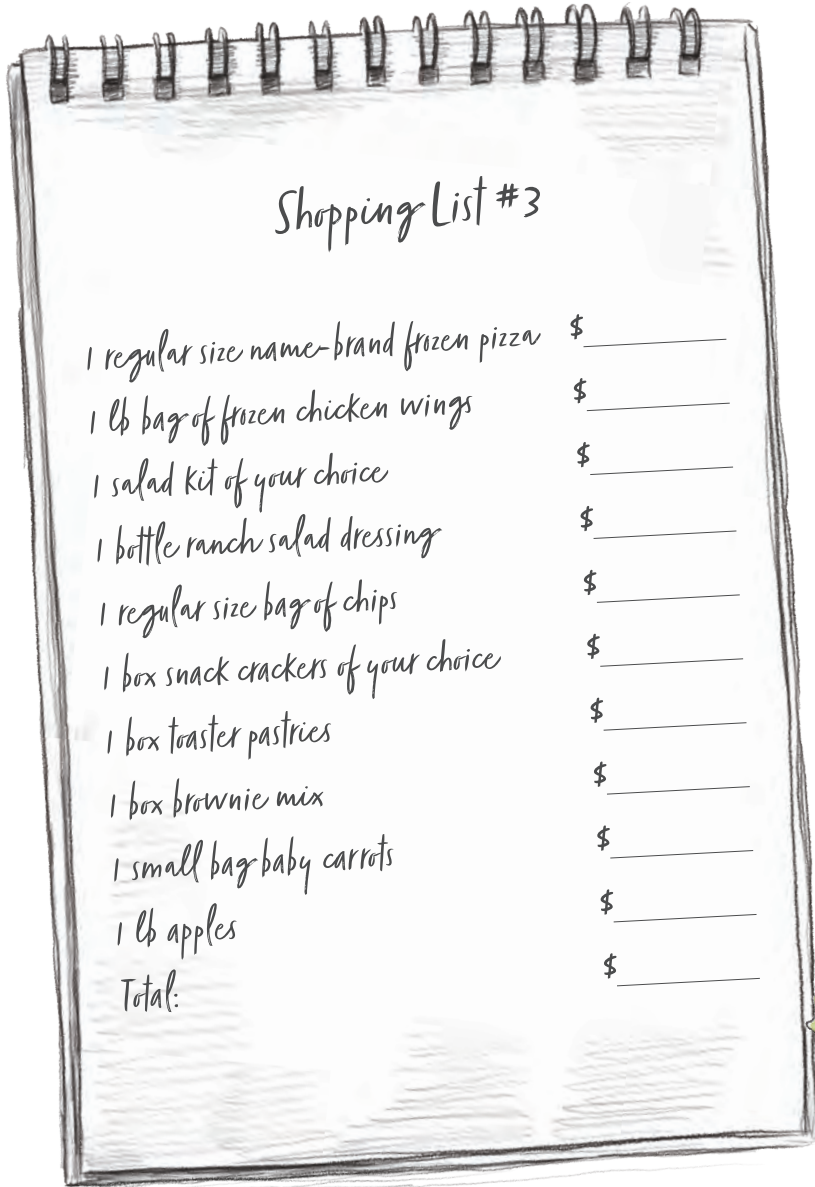 Shopping List #3
1 regular size name-brand frozen pizza $
1 lb bag of frozen chicken wings $
1 salad kit of your choice $
1 bottle ranch salad dressing $
1 regular size bag of chips $
1 box snack crackers of your choice $
1 box toaster pastries $
1 box brownie mix $
1 small bag baby carrots $
1 lb apples $
Total: $